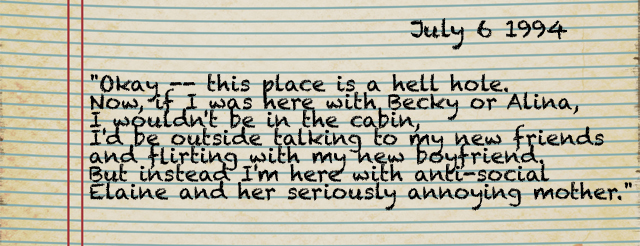 July 6 1994
"Okay -- this place is a hell hole.
Now, if I was here with Becky or Alina,
I wouldn't be in the cabin,
I'd be outside talking to my new friends
and flirting with my new boyfriend.
But instead I'm here with anti-social
Elaine and her seriously annoying mother."